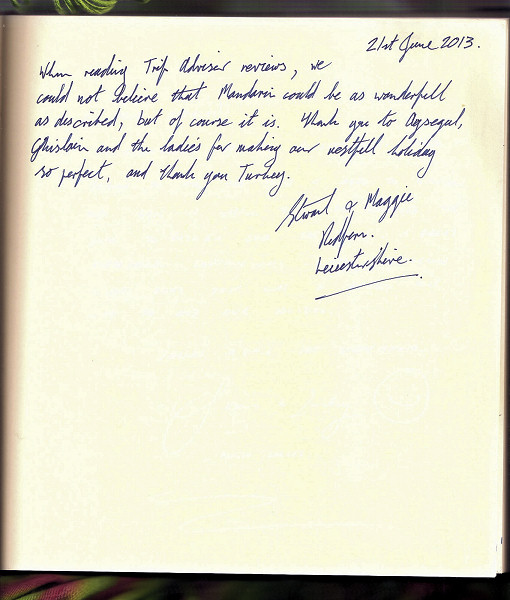 21st June 2013.
When reading Trip Adviser reviews, we
could not believe that Mandarin could be as wonderfull
as described, but of course it is. Thank you to Aysegul,
Ghislain and the ladies for making our restfull holiday
so perfect, and thank you Turkey.
Stuart & Maggie
Redfern.
Leicestershire.